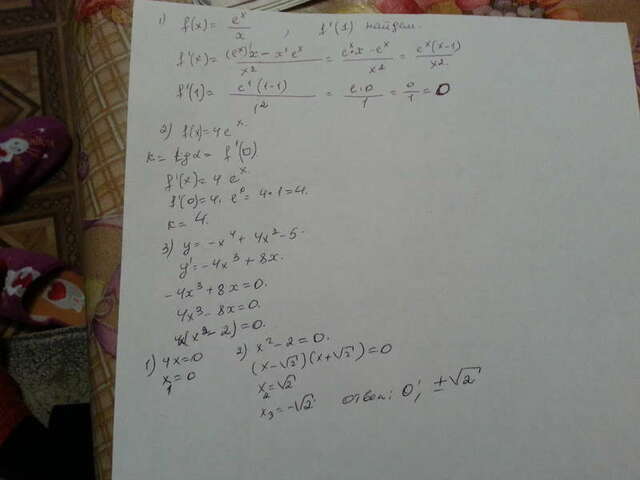 1) f(x) = e^x / x , f'(1) найдем.
f'(x) = ((e^x)'x - x'e^x) / x² = (e^x·x - e^x) / x² = e^x(x-1) / x²
f'(1) = e¹(1-1) / 1² = e·0 / 1 = 0/1 = 0
2) f(x) = 4e^x.
k = tgα = f'(0).
f'(x) = 4 e^x.
f'(0) = 4·e⁰ = 4·1 = 4.
k = 4.
3) y = -x⁴ + 4x² - 5.
y' = -4x³ + 8x.
-4x³ + 8x = 0.
4x³ - 8x = 0.
4x(x² - 2) = 0.
1) 4x = 0 2) x² - 2 = 0.
x₁ = 0 (x - √2)(x + √2) = 0
x₂ = √2
x₃ = -√2. ответ: 0; ±√2